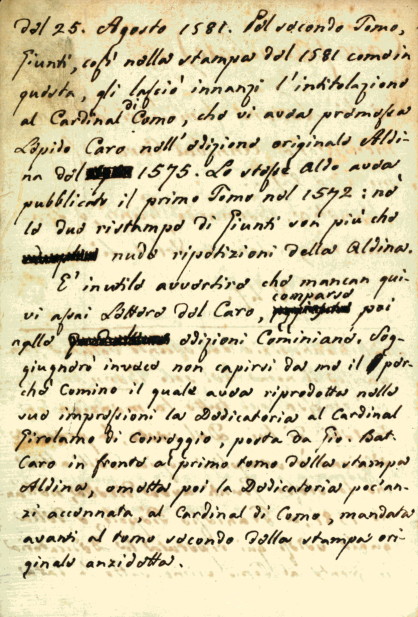 del 25. Agosto 1581. Pel secondo Tomo,
Giunti, così nella stampa del 1581 come in
questa, gli lasciò innanzi l'intitolazione
al Cardinal di Como, che vi avea premessa
Lepido Caro nell'edizione originale Aldi-
na del 1575. Lo stesso Aldo avea
pubblicato il primo Tomo nel 1572: nè
le due ristampe di Giunti son più che
nude ripetizioni della Aldina.
E' inutile avvertire che mancan qui-
vi assai Lettere del Caro, comparse poi
nelle edizioni Cominiane. Sog-
giugnerò invece non capirsi da me il per-
chè Comino il quale avea riprodotta nelle
sue impressioni la Dedicatoria al Cardinal
Girolamo di Correggio, posta da Gio. Bat.
Caro in fronte al primo tomo della stampa
Aldina, ometta poi la Dedicatoria poc'an-
zi accennata, al Cardinal di Como, mandata
avanti al tomo secondo della stampa ori-
ginale anzidetta.